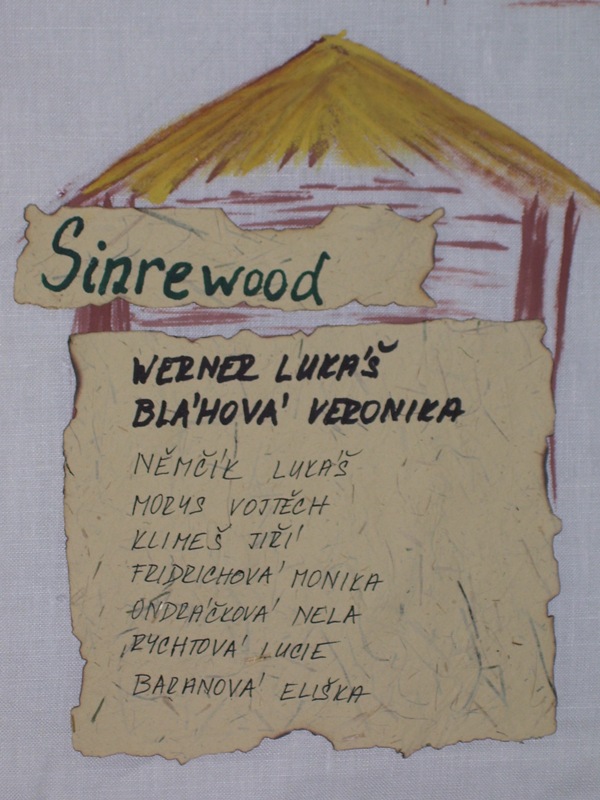 Sinrewood
WERNER LUKÁŠ
BLÁHOVÁ VERONIKA
NĚMČÍK LUKÁŠ
MORYS VOJTĚCH
KLIMEŠ JIŘÍ
FRIDRICHOVÁ MONIKA
ONDRÁČKOVÁ NELA
RYCHTOVÁ LUCIE
BARANOVÁ ELIŠKA